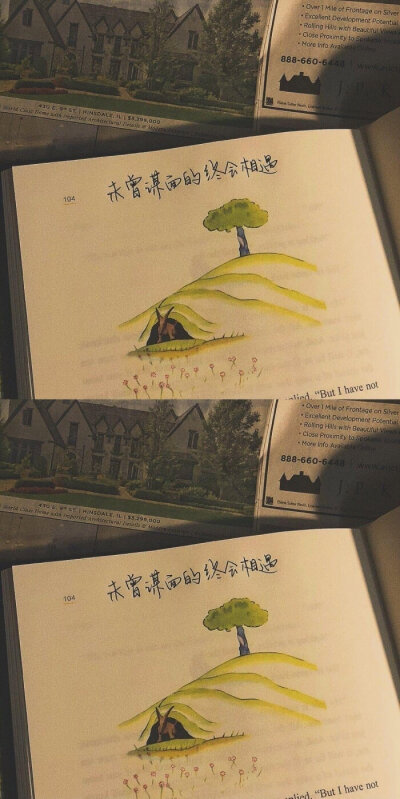 • Over 1 Mile of Frontage on Silver
• Excellent Development Potential
• Rolling Hills with Beautiful
• Close Proximity to
• More Info Available
888-660-6448
430 E. 8TH ST. | HINSDALE, IL | $3,299,000
World Class Home with Imported Architectural Details &
104
未曾谋面的终会相遇
plied, "But I have not
• Over 1 Mile of Frontage on Silver
• Excellent Development Potential
• Rolling Hills with Beautiful
• Close Proximity to
• More Info Available
888-660-6448
430 E. 8TH ST. | HINSDALE, IL | $3,299,000
World Class Home with Imported Architectural Details &
104
未曾谋面的终会相遇
plied, "But I have not